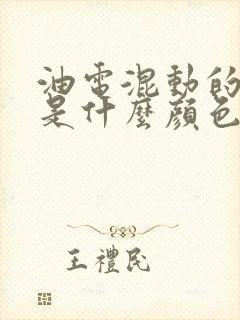 油電混動的
是什麼顏色
王禮民